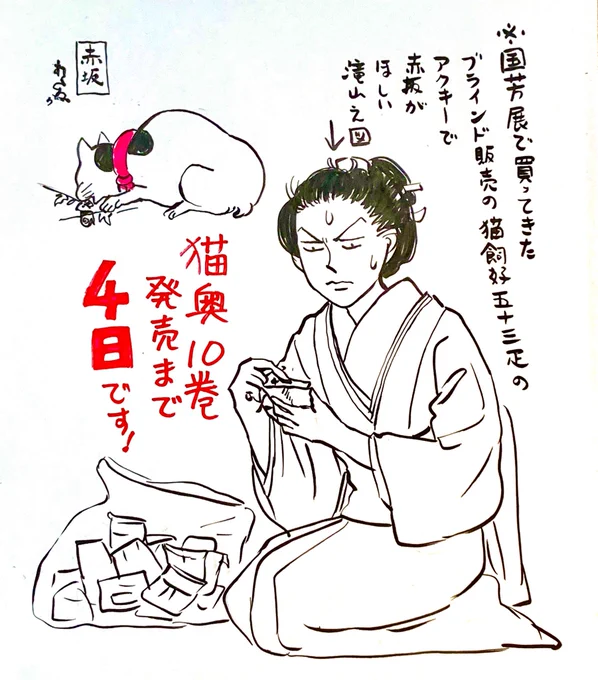 ※国芳展で買ってきた
ブラインド販売の猫飼好五十三疋の
アクキーで
赤坂が
ほしい
滝山之図
赤坂
猫奥10巻
発売まで
4日です!